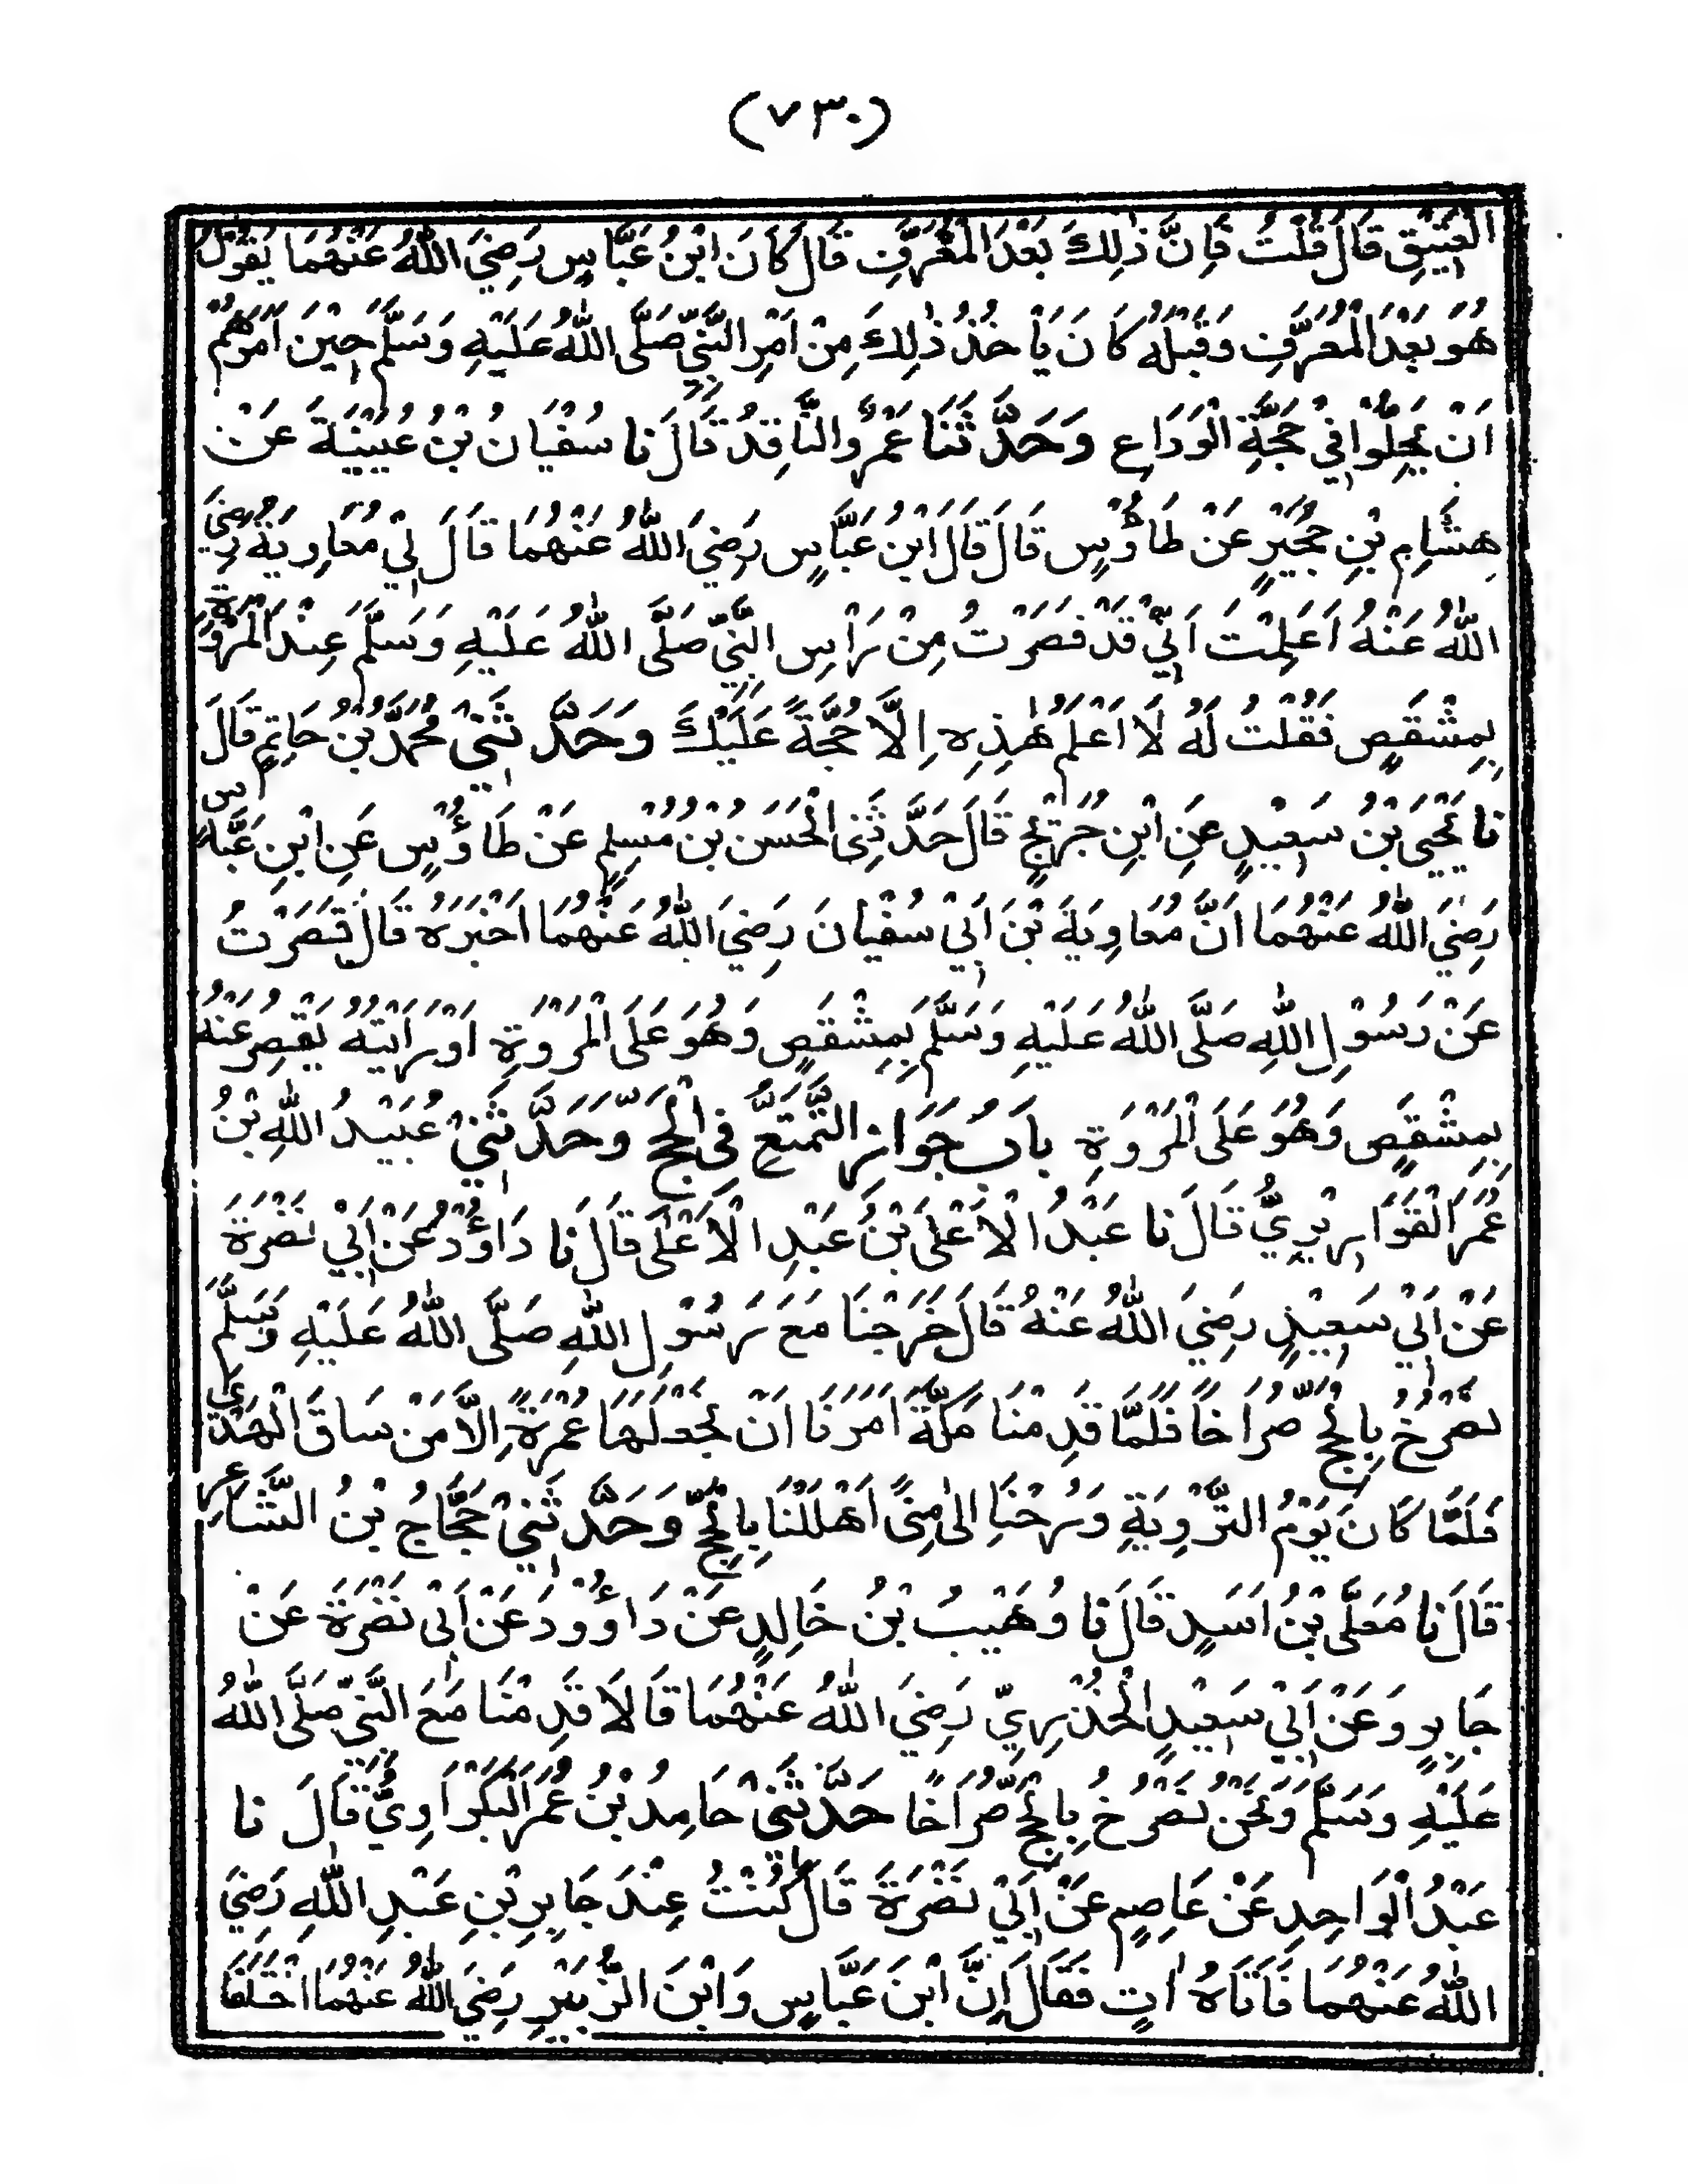 (۷۳۰)
الْعَتِيْقِ قَالَ قُلْتُ فَاِنَّ ذٰلِكَ بَعْدَ الْمُعَرَّفِ قَالَ كَانَ ابْنُ عَبَّاسٍ رَضِيَ اللّٰهُ عَنْهُمَا يَقُوْلُ
هُوَ بَعْدَ الْمُعَرَّفِ وَقَبْلَهٗ كَانَ يَاْخُذُ ذٰلِكَ مِنْ اَمْرِ النَّبِيِّ صَلَّى اللّٰهُ عَلَيْهِ وَسَلَّمَ حِيْنَ اَمَرَهُمْ
اَنْ يَحِلُّوْا فِيْ حَجَّةِ الْوَدَاعِ وَحَدَّثَنَا عَمْرٌو النَّاقِدُ قَالَ نا سُفْيَانُ بْنُ عُيَيْنَةَ عَنْ
هِشَامِ بْنِ حُجَيْرٍ عَنْ طَاوٗسٍ قَالَ قَالَ ابْنُ عَبَّاسٍ رَضِيَ اللّٰهُ عَنْهُمَا قَالَ لِيْ مُعَاوِيَةُ رَضِيَ
اللّٰهُ عَنْهُ اَعَلِمْتَ اَنِّيْ قَدْ قَصَرْتُ مِنْ رَاْسِ النَّبِيِّ صَلَّى اللّٰهُ عَلَيْهِ وَسَلَّمَ عِنْدَ الْمَرْوَةِ
بِمِشْقَصٍ فَقُلْتُ لَهٗ لَا اَعْلَمُ هٰذِهٖ اِلَّا حُجَّةً عَلَيْكَ وَحَدَّثَنِيْ مُحَمَّدُ بْنُ حَاتِمٍ قَالَ
نا يَحْيَى بْنُ سَعِيْدٍ عَنِ ابْنِ جُرَيْجٍ قَالَ حَدَّثَنِى الْحَسَنُ بْنُ مُسْلِمٍ عَنْ طَاوٗسٍ عَنِ ابْنِ عَبَّاسٍ
رَضِيَ اللّٰهُ عَنْهُمَا اَنَّ مُعَاوِيَةَ بْنَ اَبِيْ سُفْيَانَ رَضِيَ اللّٰهُ عَنْهُمَا اَخْبَرَهُ قَالَ قَصَرْتُ
عَنْ رَسُوْلِ اللّٰهِ صَلَّى اللّٰهُ عَلَيْهِ وَسَلَّمَ بِمِشْقَصٍ وَهُوَ عَلَى الْمَرْوَةِ اَوْ رَاَيْتُهٗ يُقْصَرُ عَنْهُ
بِمِشْقَصٍ وَهُوَ عَلَى الْمَرْوَةِ بَابُ جَوَازِ التَّمَتُّعِ فِى الْحَجِّ وَحَدَّثَنِيْ عُبَيْدُ اللّٰهِ بْنُ
عُمَرَ الْقَوَارِيْرِيُّ قَالَ نا عَبْدُ الْاَعْلَى بْنُ عَبْدِ الْاَعْلَى قَالَ نَا دَاوٗدُ عَنْ اَبِيْ نَضْرَةَ
عَنْ اَبِيْ سَعِيْدٍ رَضِيَ اللّٰهُ عَنْهُ قَالَ خَرَجْنَا مَعَ رَسُوْلِ اللّٰهِ صَلَّى اللّٰهُ عَلَيْهِ وَسَلَّمَ
نَصْرُخُ بِالْحَجِّ صُرَاخًا فَلَمَّا قَدِمْنَا مَكَّةَ اَمَرَنَا اَنْ نَجْعَلَهَا عُمْرَةً اِلَّا مَنْ سَاقَ الْهَدْيَ
فَلَمَّا كَانَ يَوْمُ التَّرْوِيَةِ وَرُحْنَا اِلٰى مِنًى اَهْلَلْنَا بِالْحَجِّ وَحَدَّثَنِيْ حَجَّاجُ بْنُ الشَّاعِرِ
قَالَ نا مُعَلَّى بْنُ اَسَدٍ قَالَ نا وُهَيْبُ بْنُ خَالِدٍ عَنْ دَاوٗدَ عَنْ اَبِى نَضْرَةَ عَنْ
جَابِرٍ وَعَنْ اَبِيْ سَعِيْدٍ الْخُدْرِيِّ رَضِيَ اللّٰهُ عَنْهُمَا قَالَا قَدِمْنَا مَعَ النَّبِيِّ صَلَّى اللّٰهُ
عَلَيْهِ وَسَلَّمَ وَنَحْنُ نَصْرُخُ بِالْحَجِّ صُرَاخًا حَدَّثَنِيْ حَامِدُ بْنُ عُمَرَ الْبَكْرَاوِيُّ قَالَ نا
عَبْدُ الْوَاحِدِ عَنْ عَاصِمٍ عَنْ اَبِيْ نَضْرَةَ قَالَ كُنْتُ عِنْدَ جَابِرِ بْنِ عَبْدِ اللّٰهِ رَضِيَ
اللّٰهُ عَنْهُمَا فَاَتَاهُ اٰتٍ فَقَالَ اِنَّ ابْنَ عَبَّاسٍ وَابْنَ الزُّبَيْرِ رَضِيَ اللّٰهُ عَنْهُمَا اخْتَلَفَا